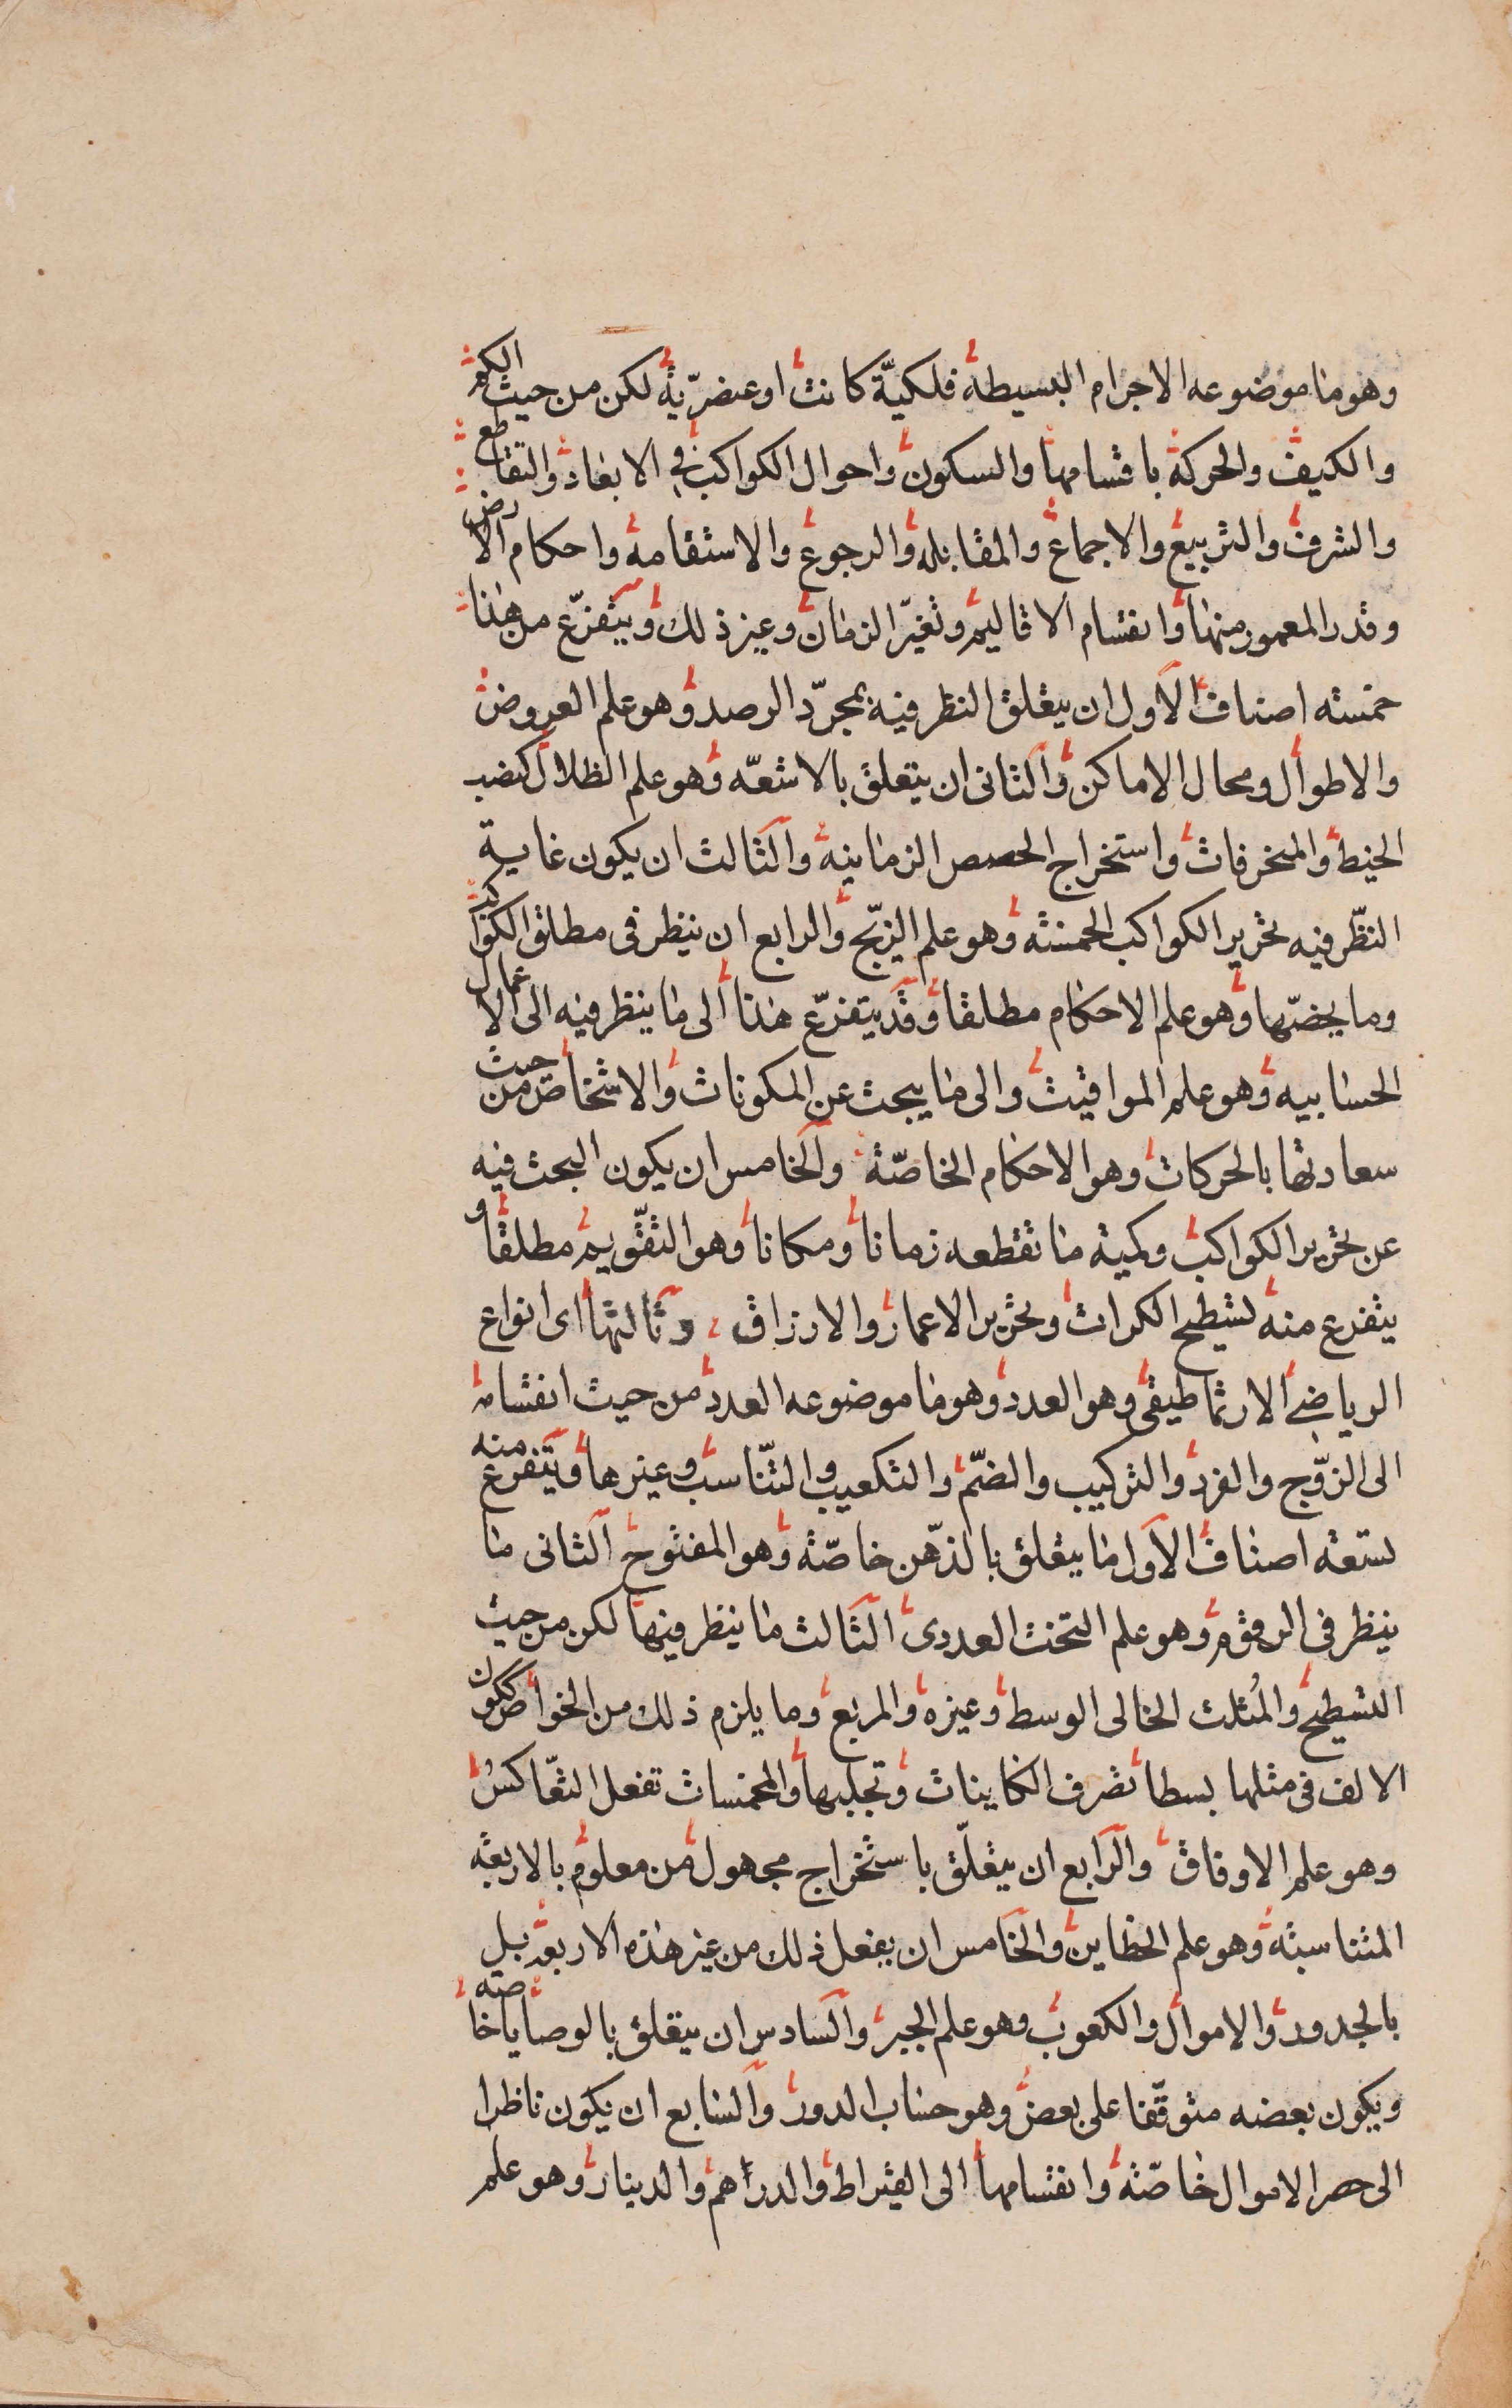 وهو ما موضوعه الاجرام البسيطة فلكيّة كانت او عنصريّة لكن من حيث الكم
والكيف والحركة باقسامها والسكون واحوال الكواكب في الابعاد والتقاطع
والشرف والتربيع والاجماع والمقابله والرجوع والاستقامة واحكام الارض
وقدر المعمور منها وانقسام الاقاليم وتغيّر الزمان وغير ذلك ويتفرّع من هذا
خمسته اصناف الاول ان يتعلق النظر فيه بمجرّد الرصد وهو علم العروض
والاطوال ومحال الاماكن والثانى ان يتعلق بالاشعّه وهو علم الظلال كنصب
الخيط والمنحرفات واستخراج الحصص الزمانية والثالث ان يكون غاية
النّظر فيه تحرير الكواكب الخمسة وهو علم الزيّج والرابع ان ينظر فى مطلق الكواكب
وما يخصّها وهو علم الاحكام مطلقا وقد يتفرّع هذا الى ما ينظر فيه الى الاعمال
الحسابيه وهو علم المواقيت والى ما يبحث عن المكونات والاشخاص من حيث
سعادتها بالحركات وهو الاحكام الخاصّة والخامس ان يكون البحث فيه
عن تحرير الكواكب وكمية ما تقطعه زمانا ومكانا وهو التقّويم مطلقا و
يتفرع منه تسطيح الكرات وتحرير الاعمار والارزاق وثالثها اى انواع
الرياضي الارثماطيقى وهو العدد وهو ما موضوعه العدد من حيث انقسامه
الى الزوّج والفرد والتركيب والضمّ والتكعيب والتّناسب وغيرها ويتفرع منه
تسعة اصناف الاول ما يتعلق بالذهّن خاصّة وهو المفتوح الثانى ما
ينظر فى الرقوم وهو علم التخت العددى الثالث ما ينظر فيها لكن من حيث
التسطيح والمُثلث الخالى الوسط وغيره والمربع وما يلزم ذلك من الخواص ككون
الالف فى مثلها بسطا تصرف الكاينات وتجلبها والمخمسات تفعل التعّاكسُ
وهو علم الاوفاق والرابع ان يتعلّق باستخراج مجهول من معلوم بالاربعة
المتناسبة وهو علم الخطاين والخامس ان يفعل ذلك من غير هذه الاربعة بل
بالجدود والاموال والكعوب وهو علم الجبر والسادس ان يتعلق بالوصايا خاصته
ويكون بعضه متوقّفا على بعض وهو حساب الدور والسابع ان يكون ناظرا
الى حصر الاموال خاصّة وانقسامها الى القيراط والدراهم والدينار وهو علم